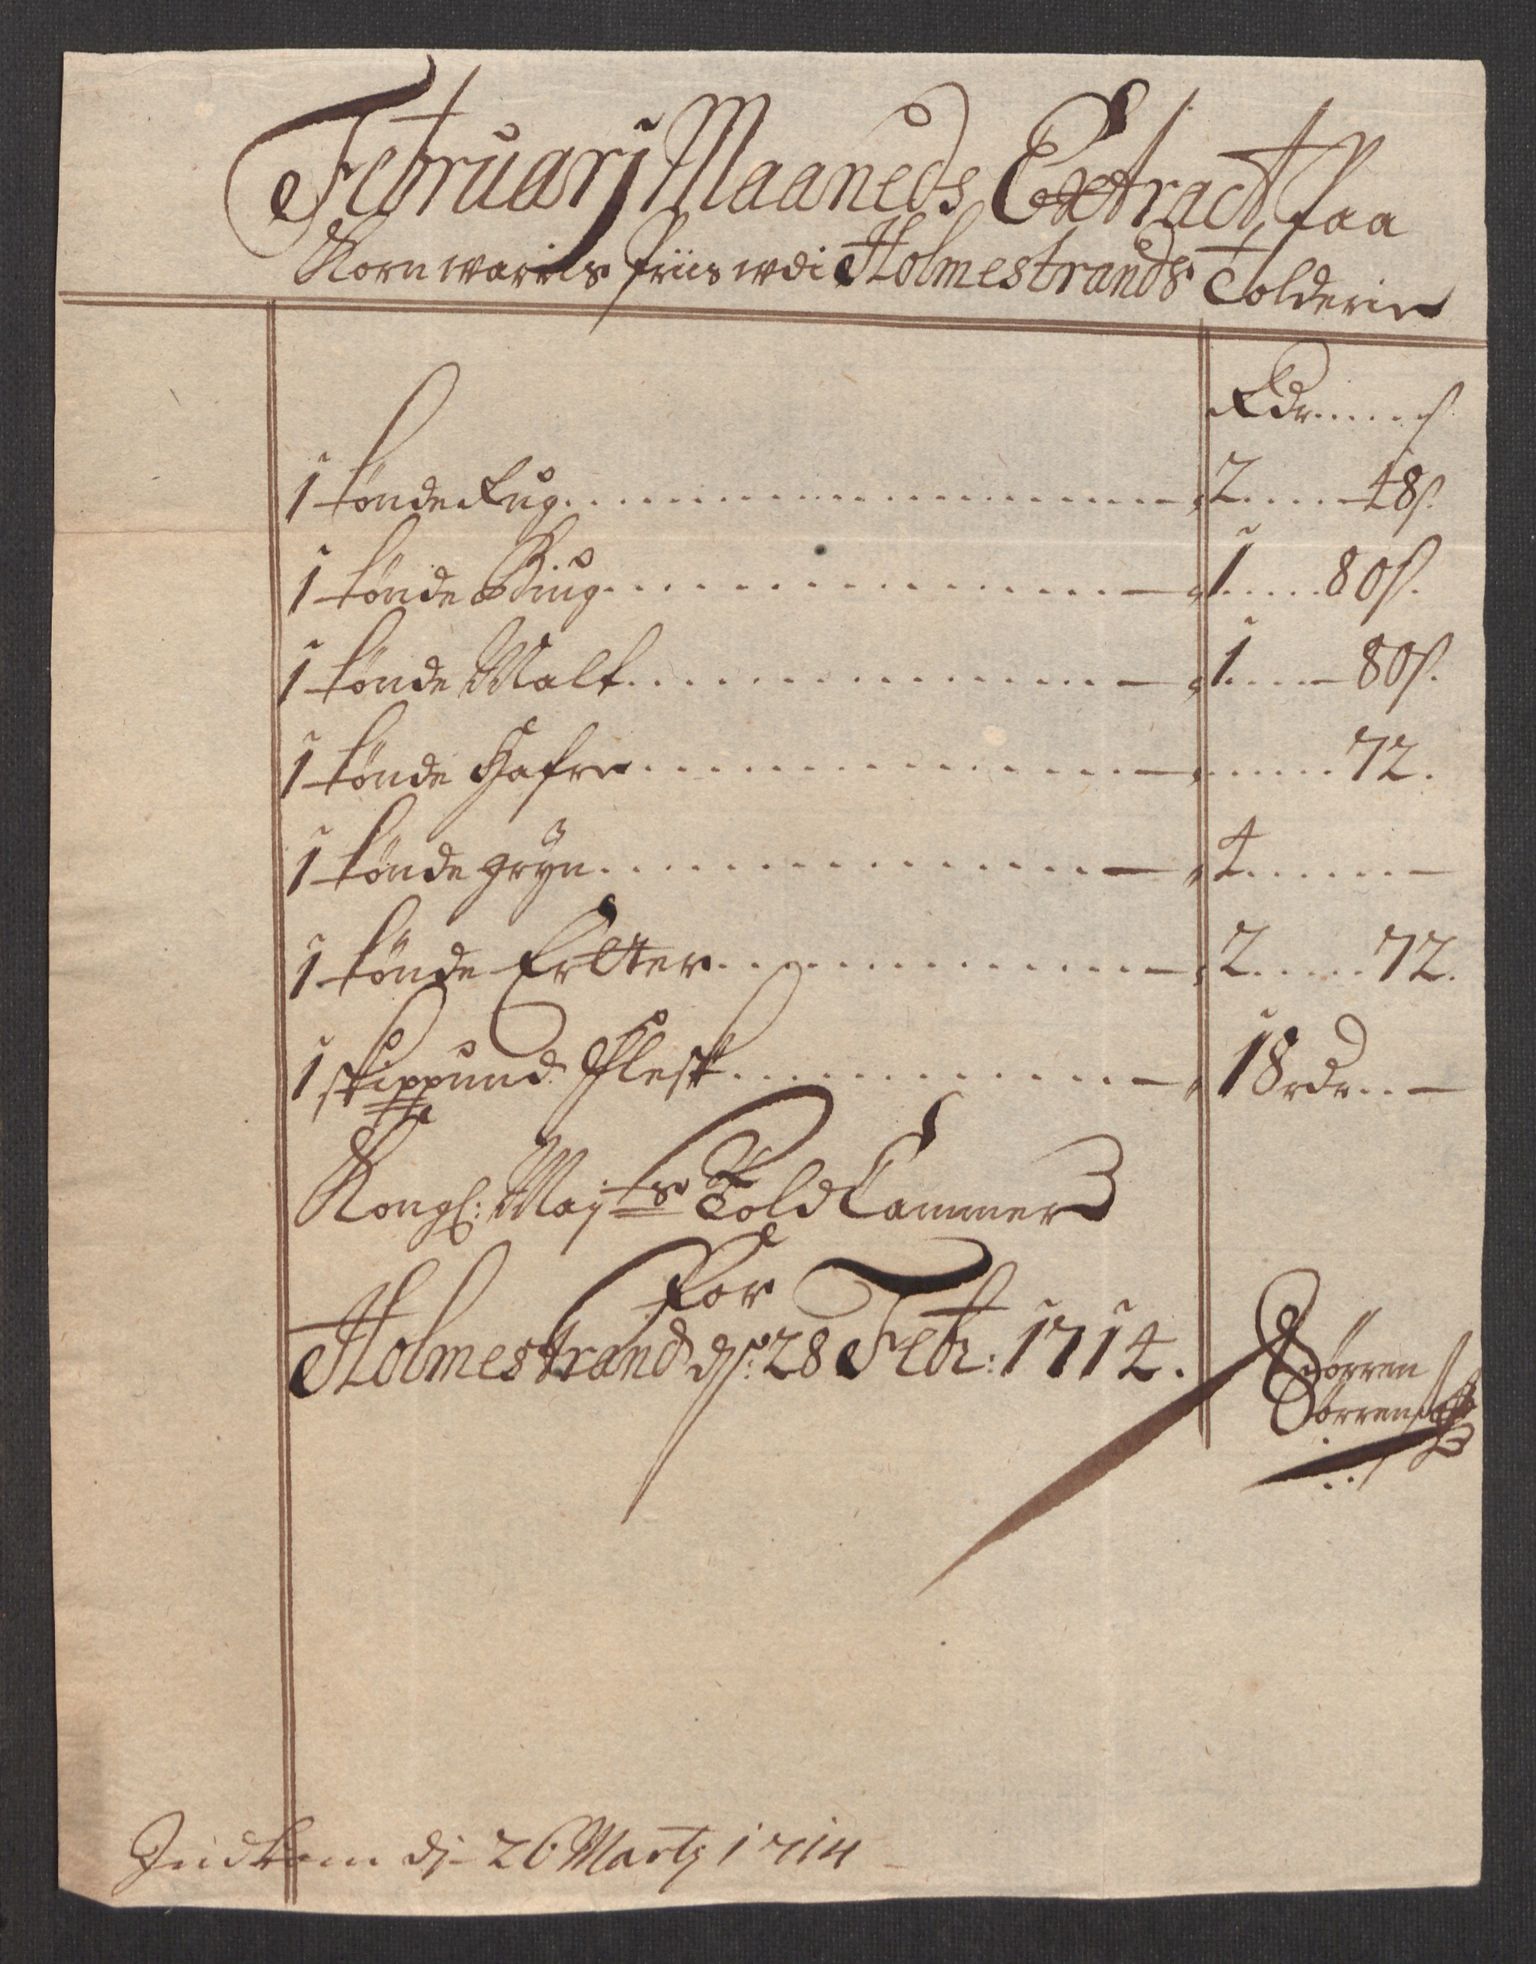 Februarij Maaneds Extract, Paa
Kornwarris Priis wdi Holmestrands Tolderie
Rdr..... ß
1 tønde Rug 2 48 ß.
1 tønde Biug 1 80 ß.
1 tønde Malt 1 80 ß.
1 tønde Hafre 72.
1 tønde gryn 4
1 tønde Ertter 2 72.
1 skippund Flesk 18 rdr
Kongl: Maj:ts Told Cammer
For
Holmestrand d: 28 Febr: 1714.
Sørren
Sørrens
Indkom d: 26 Martij 1714